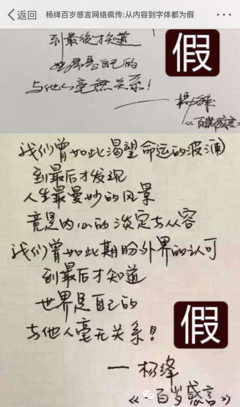 返回
杨绛百岁感言网络疯传:从内容到字体都为假
到最后才知道
世界是自己的
与他人毫无关系!
假
—杨绛
《百岁感言》
我们曾如此渴望命运的波澜
到最后才发现
人生最曼妙的风景
竟是内心的淡定与从容
我们曾如此期盼外界的认可
到最后才知道
世界是自己的
与他人毫无关系!
假
—杨绛
《百岁感言》